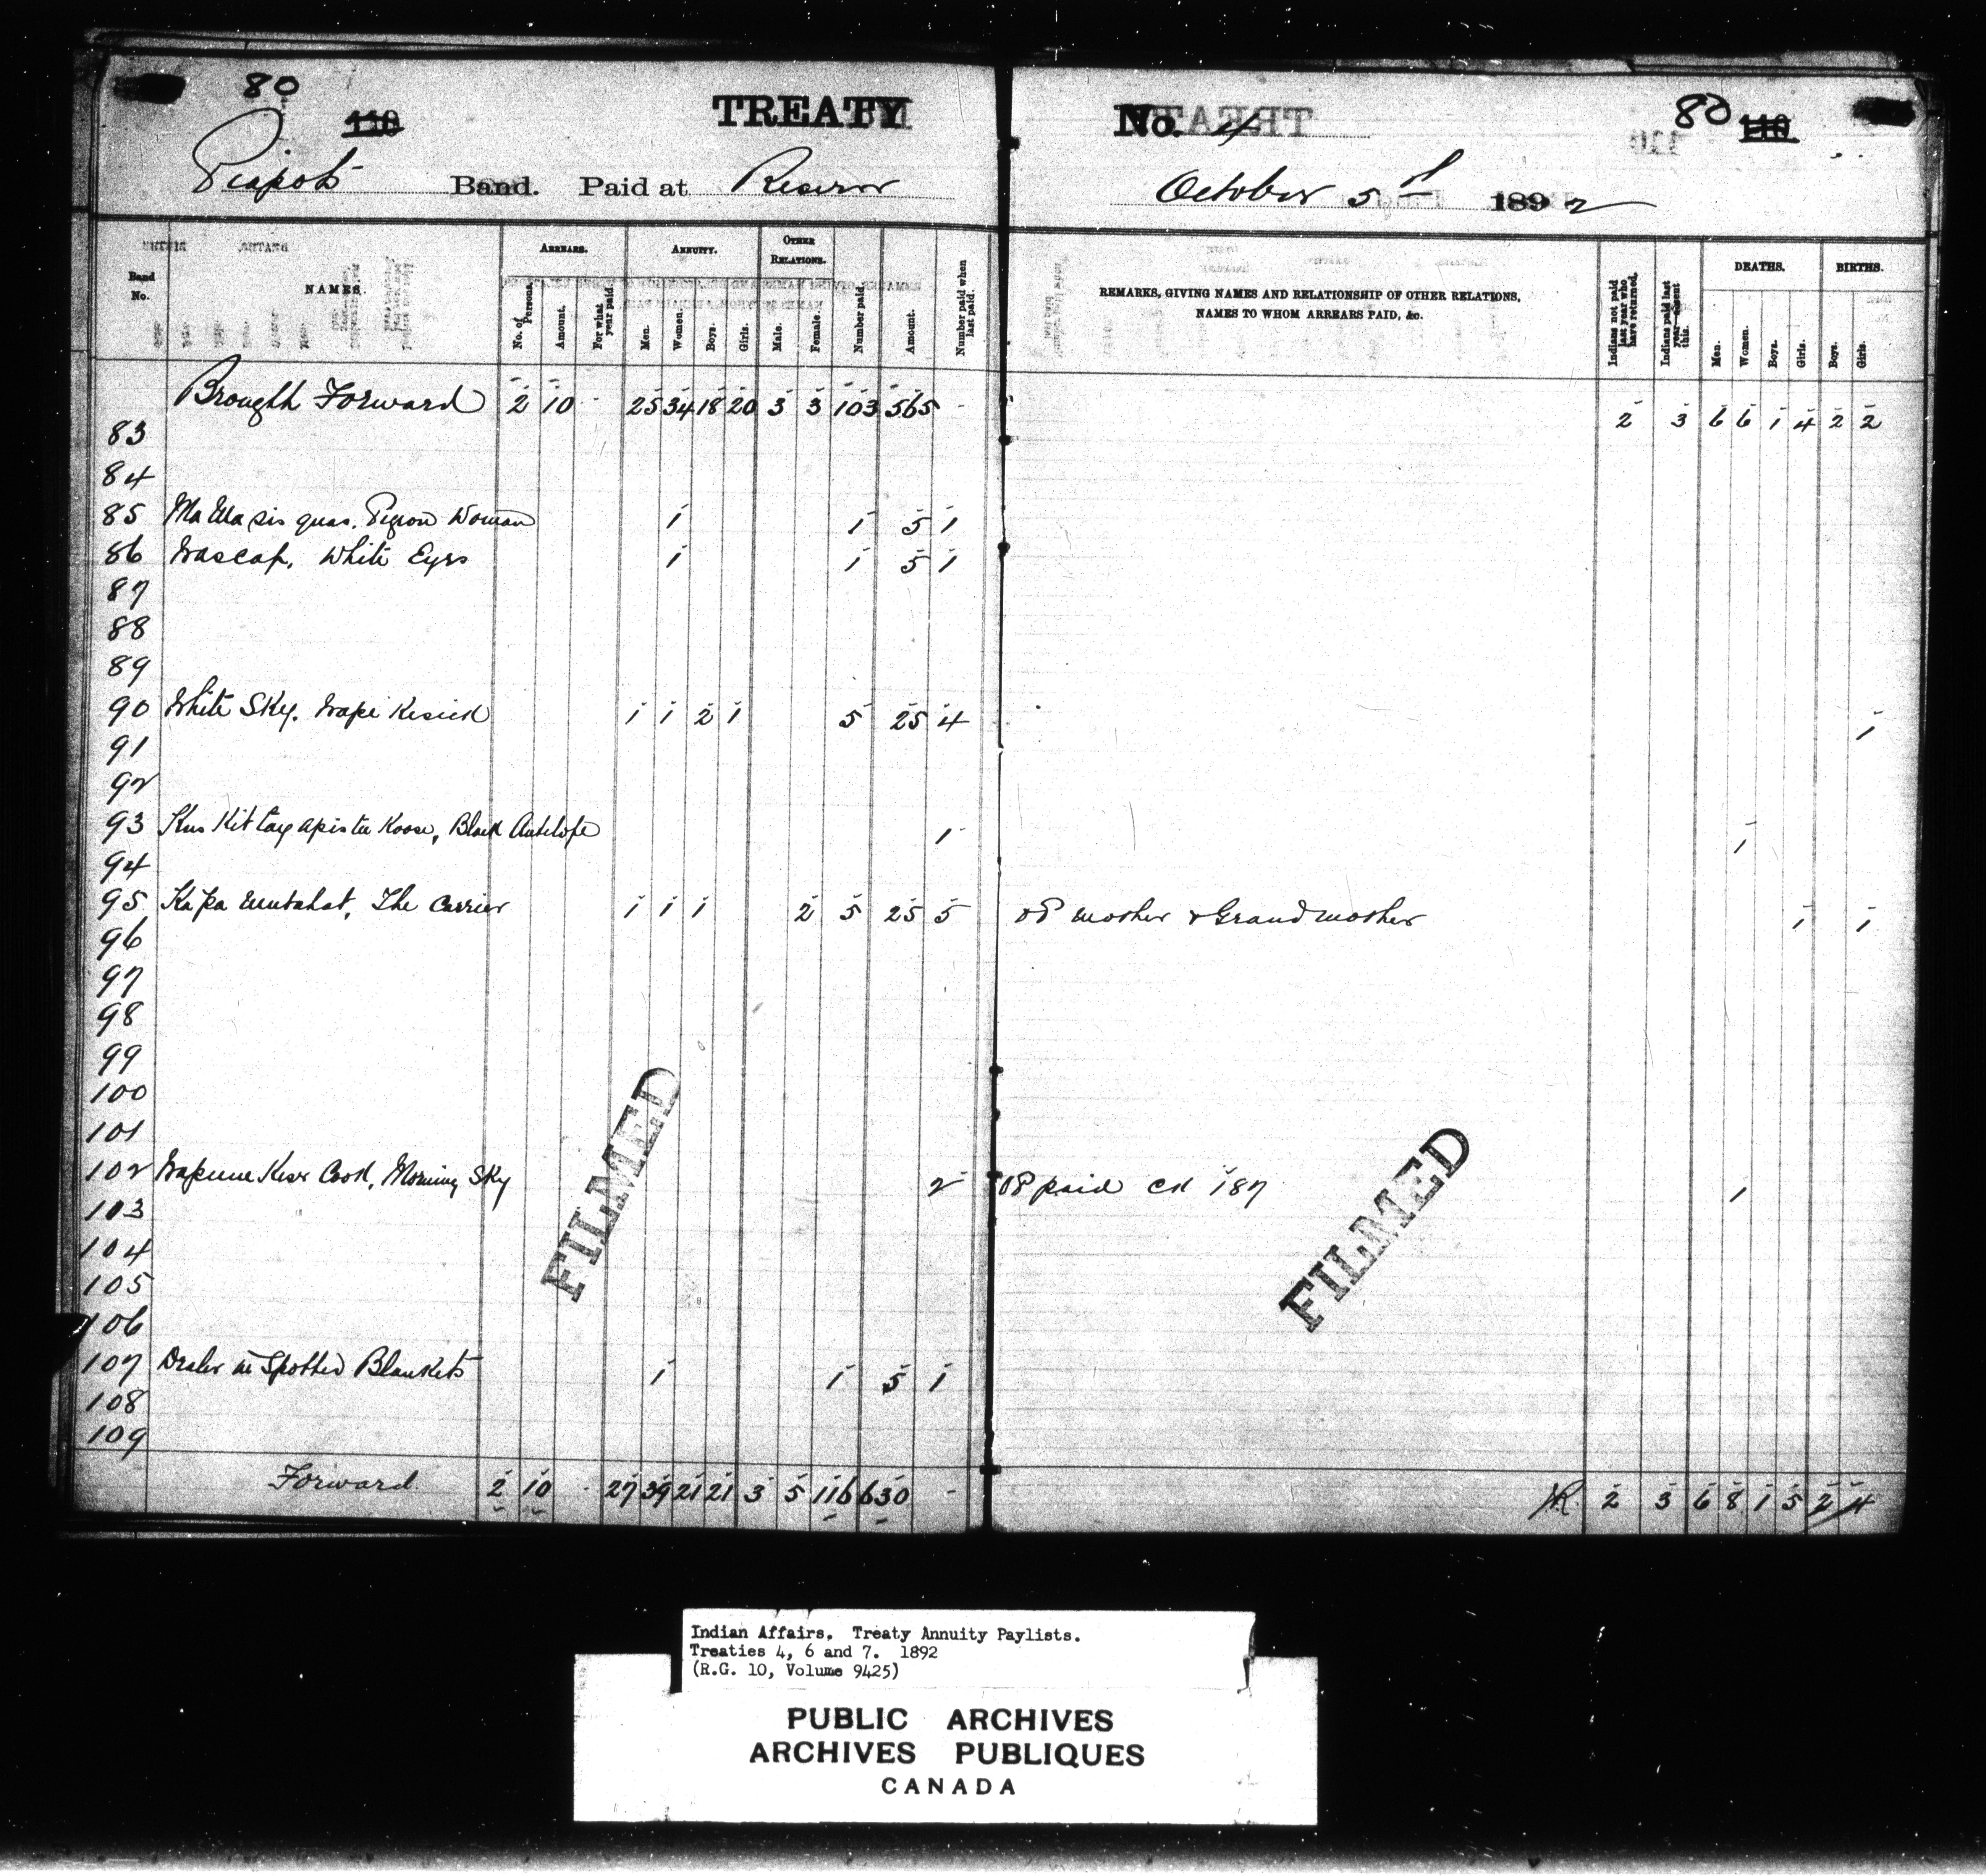 80 110 TREATY No. 4 80 110
Piapots Band. Paid at Reserve October 5th 1892
Band No. NAMES. ARREARS. ANNUITY. OTHER RELATIONS. Number paid. Amount. Number paid when last paid. REMARKS, GIVING NAMES AND RELATIONSHIP OF OTHER RELATIONS, NAMES TO WHOM ARREARS PAID, &c. Indians not paid last year who have returned. Indians paid last year absent this. DEATHS. BIRTHS.
No. of Persons. Amount. For what year paid. Men. Women. Boys. Girls. Male. Female. Men. Women. Boys. Girls. Boys. Girls.
Brought Forward 2 10 - 25 34 18 20 3 3 103 565 - 2 3 6 6 1 4 2 2
83
84
85 Pigeon Woman 1 1 5 1
86 Wascap, White Eyes 1 1 5 1
87
88
89
90 White Sky. Wape Kesick 1 1 2 1 5 25 4 1
91
92
93 Black Antelope 1 1
94
95 The Carrier 1 1 1 2 5 25 5 mother & Grandmother 1 1
96
97
98
99
100
101
102 Morning Sky 2 paid 187 1
103
104
105
106
107 Dealer in Spotted Blankets 1 1 5 1
108
109
Forward 2 10 - 27 39 21 21 3 5 116 630 - 2 3 6 8 1 5 2 4
FILMED
FILMED
Indian Affairs. Treaty Annuity Paylists.
Treaties 4, 6 and 7. 1892
(R.G. 10, Volume 9425)
PUBLIC ARCHIVES
ARCHIVES PUBLIQUES
CANADA